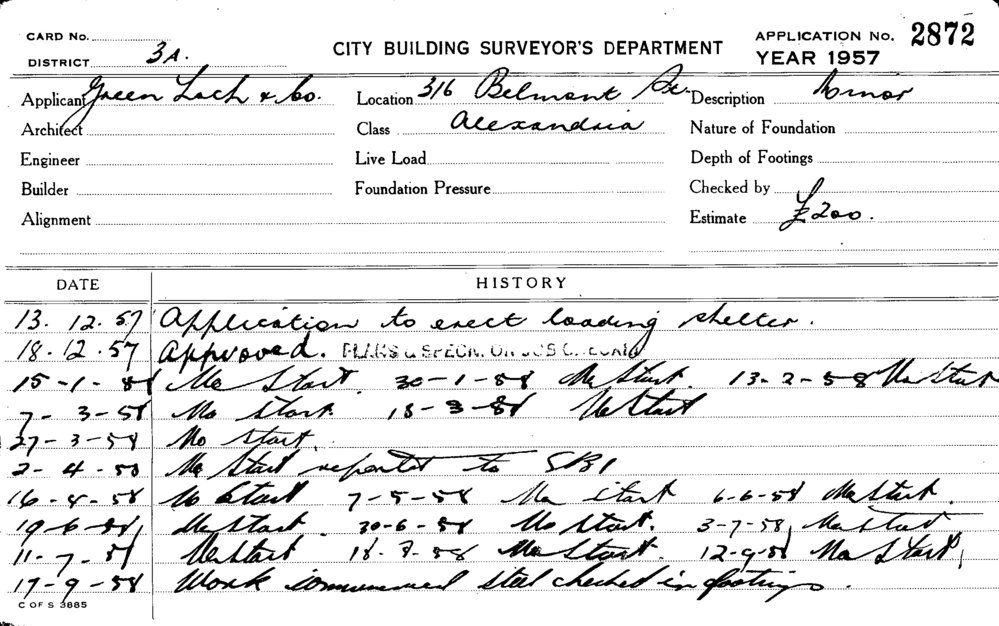 CARD No.
DISTRICT 3A.
CITY BUILDING SURVEYOR'S DEPARTMENT
APPLICATION No. 2872
YEAR 1957
Applicant Green Loch & Co. Location 316 Belmont Description Minor
Architect Class Alexandria Nature of Foundation
Engineer Live Load Depth of Footings
Builder Foundation Pressure Checked by
Alignment Estimate £200.
DATE HISTORY
13. 12. 57 Application to erect loading shelter.
18. 12. 57 Approved. PLANS & SPECN. ON JOB
15-1-58 No Start. 30-1-58 No Start. 13-2-58 No Start
7-3-58 No Start 18-3-58 No Start
27-3-58 No Start.
2-4-58 No Start reported to SBI
16-4-58 No Start 7-5-58 No start 6-6-58 No Start.
19-6-58 No Start 30-6-58 No Start. 3-7-58 No Start
11-7-58 No Start 18-8-58 No Start. 12-9-58 No Start
17-9-58 Work commenced steel checked in footings.
C OF S 3885